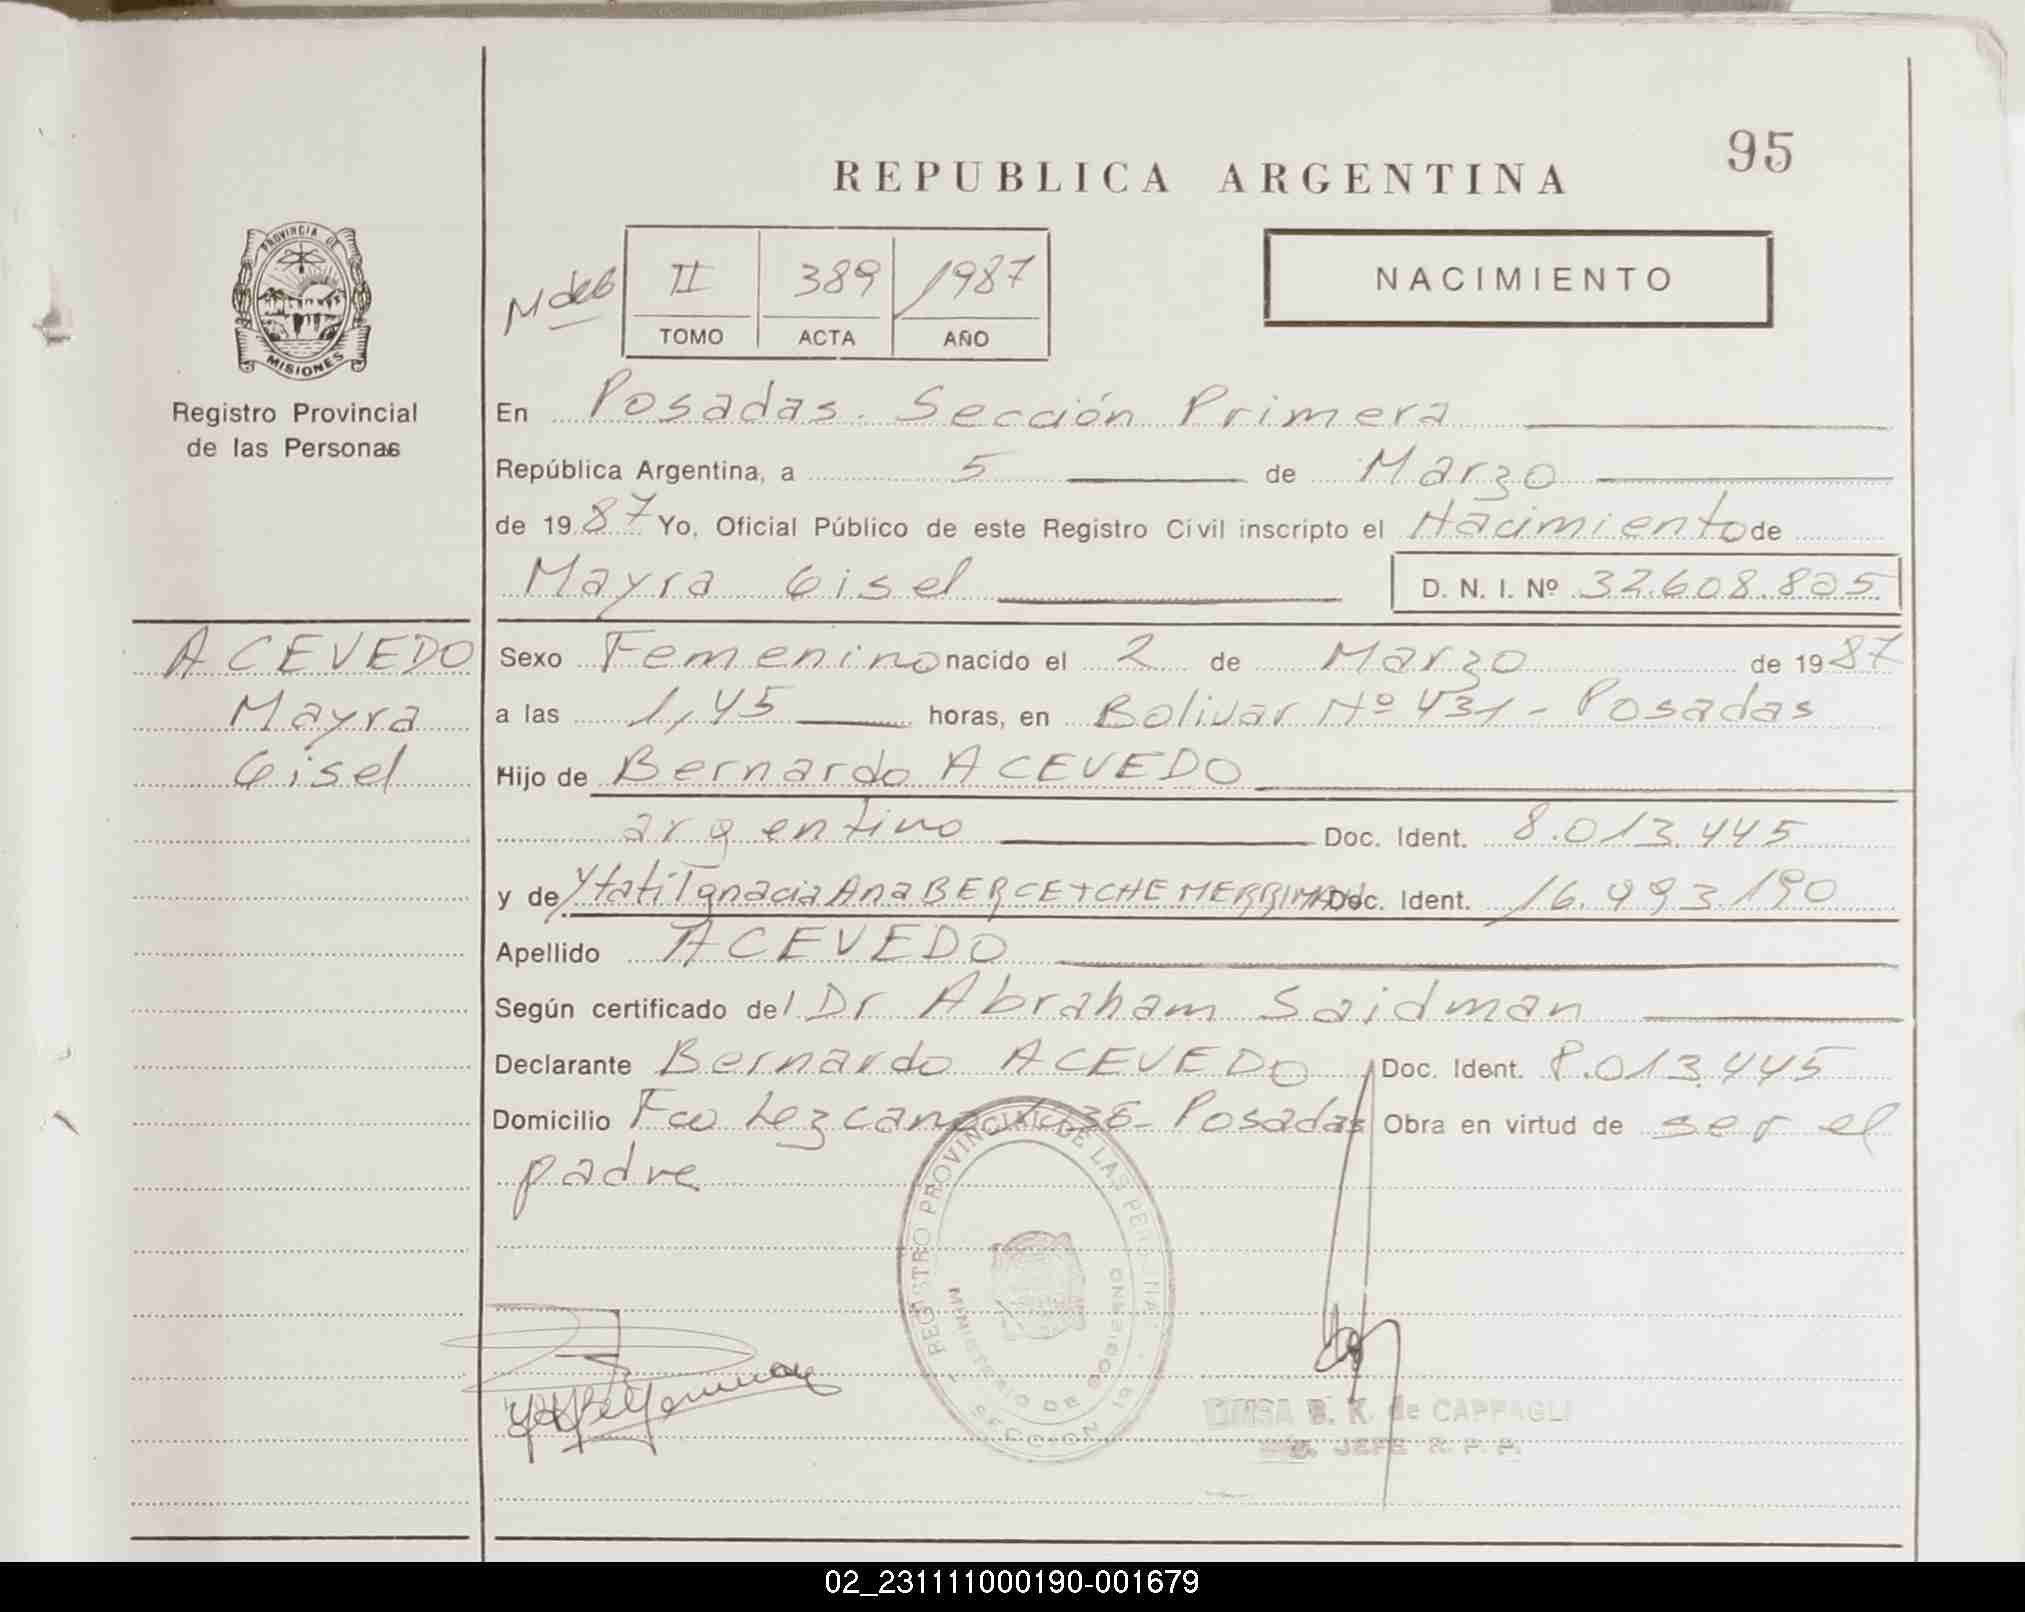 95
REPUBLICA ARGENTINA
PROVINCIA DE
MISIONES
Registro Provincial
de las Personas
II 389 1987
TOMO ACTA AÑO
NACIMIENTO
En Posadas. Sección Primera
República Argentina, a 5 de Marzo
de 1987 Yo, Oficial Público de este Registro Civil inscripto el Nacimiento de
Mayra Gisel D. N. I. Nº 32.608.805
ACEVEDO
Mayra
Gisel
Sexo Femenino nacido el 2 de Marzo de 1987
a las 1,45 horas, en Bolivar Nº 431 - Posadas
Hijo de Bernardo ACEVEDO
argentino Doc. Ident. 8.013.445
y de Ytatí Ignacia Ana Doc. Ident. 16.993.190
Apellido ACEVEDO
Según certificado del Dr Abraham Saidman
Declarante Bernardo ACEVEDO Doc. Ident. 8.013.445
Domicilio Fco Lezcano - Posadas Obra en virtud de ser el
padre
REGISTRO PROVINCIAL DE LAS PERSONAS
MINISTERIO DE GOBIERNO
SECCION
B. K. de CAPPAGLI
JEFE R. P. P.
02_231111000190-001679